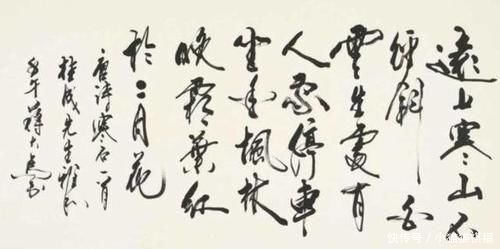 遠上寒山石
徑斜 白
雲生處有
人家停車
坐愛楓林
晚霜葉紅
於二月花
唐詩一首
桂成先生雅
午蔣大為書
快传号